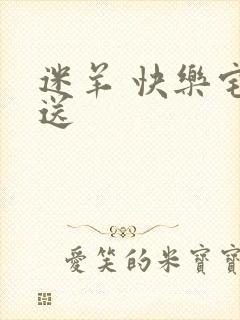 迷羊 快樂宅
送
愛笑的米寶寶